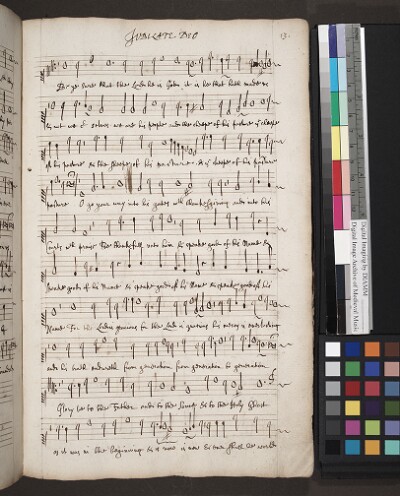 JUBILATE DEO
13.
Be ye sure that the Lord he is God, it is he that hath made us
not we
his people and the sheepe of his pasture
of his pasture & the sheepe of his pasture sheepe of his pasture
pasture O go your way into his gates with thanksgiving and into his
courts with praise be thankefull unto him & speake good of his Name &
speake good of his Name & speake good of his Name & speake good of his
Name For the Lord is gracious his mercy is everlasting
and his truth endureth from generation from generation to generation
Glory be to the Father and to the Sonne & to the Holy Ghost
As it was in the beginning & is now is now & ever shall be world
Digital Imaging by DIAMM
Digital Image Archive of Medieval Music